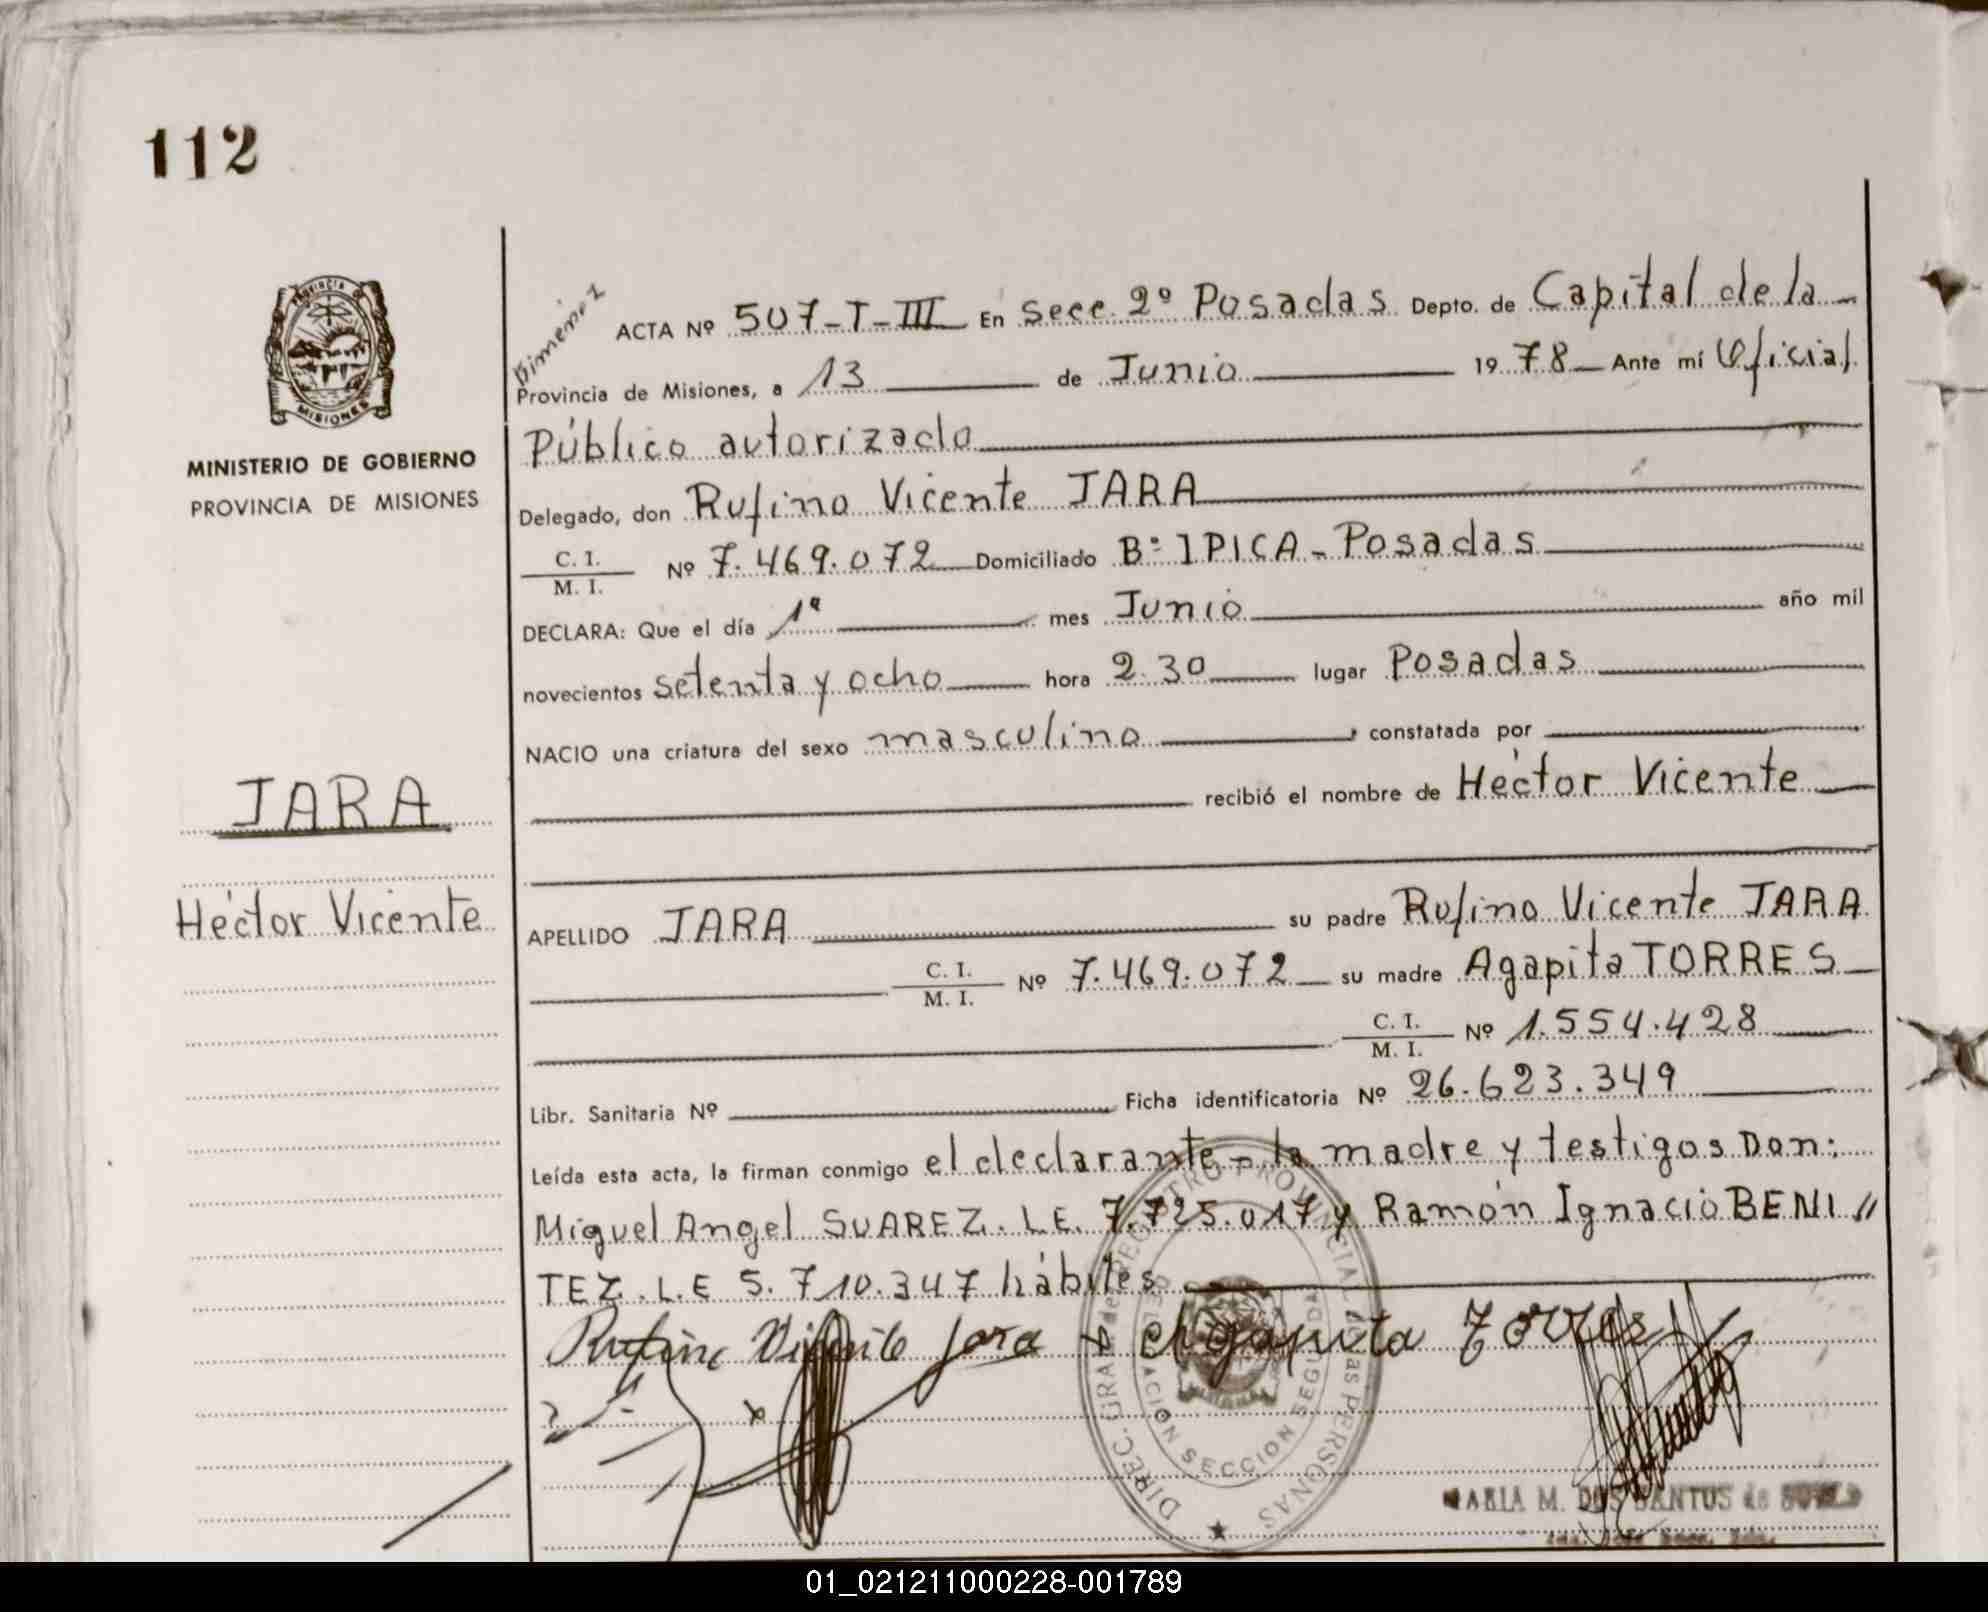 112
PROVINCIA DE
MISIONES
MINISTERIO DE GOBIERNO
PROVINCIA DE MISIONES
JARA
Héctor Vicente
ACTA Nº 507-T-III En Secc. 2º Posadas Depto. de Capital de la
Provincia de Misiones, a 13 de Junio 1978 Ante mí Oficial
Público autorizado
Delegado, don Rufino Vicente JARA
C. I.
M. I. Nº 7.469.072 Domiciliado Bº IPICA - Posadas
DECLARA: Que el día 1º mes Junio año mil
novecientos setenta y ocho hora 2.30 lugar Posadas
NACIO una criatura del sexo masculino, constatada por
recibió el nombre de Héctor Vicente
APELLIDO JARA su padre Rufino Vicente JARA
C. I.
M. I. Nº 7.469.072 su madre Agapita TORRES
C. I.
M. I. Nº 1.554.428
Libr. Sanitaria Nº Ficha identificatoria Nº 26.623.349
Leída esta acta, la firman conmigo el declarante - la madre y testigos Don:
Miguel Angel SUAREZ. L.E. 7.725.017 y Ramón Ignacio BENI //
TEZ. L.E 5.710.347 hábiles
Rufino Vicente Jara x Agapita Torres
DIREC. GRAL. de REGISTRO PROVINCIAL de las PERSONAS
SECCION SEGUNDA
MARIA M. DOS SANTOS de
01_021211000228-001789